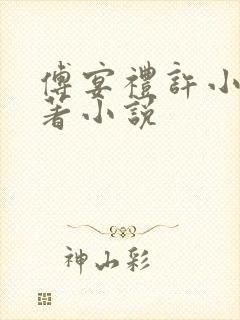 傅宴禮許小
著小說
神山彩